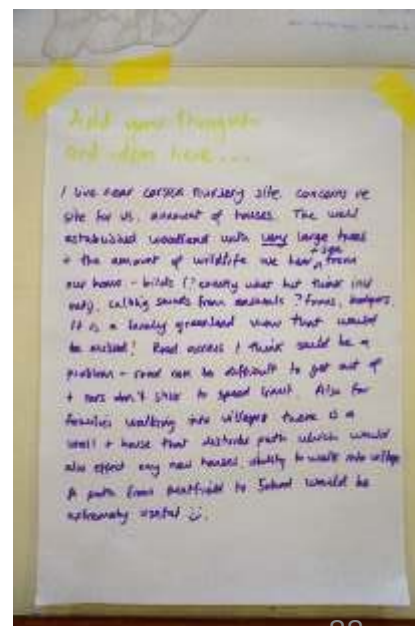 Add your thoughts
and ideas here...
I live near nursery site. concerns re
site for us. amount of houses. The well
established woodland with very large trees
+ the amount of wildlife we hear + see from
our home - birds (? exactly what but think incl
owls), calling sounds from animals ? foxes, badgers.
It is a lovely greenland view that would
be missed! Road access I think could be a
problem - road can be difficult to get out of
+ cars don't stick to speed limit. Also for
families walking into villages there is a
wall + house that path which would
also effect any new houses ability to walk into village
A path from to School would be
extremely useful